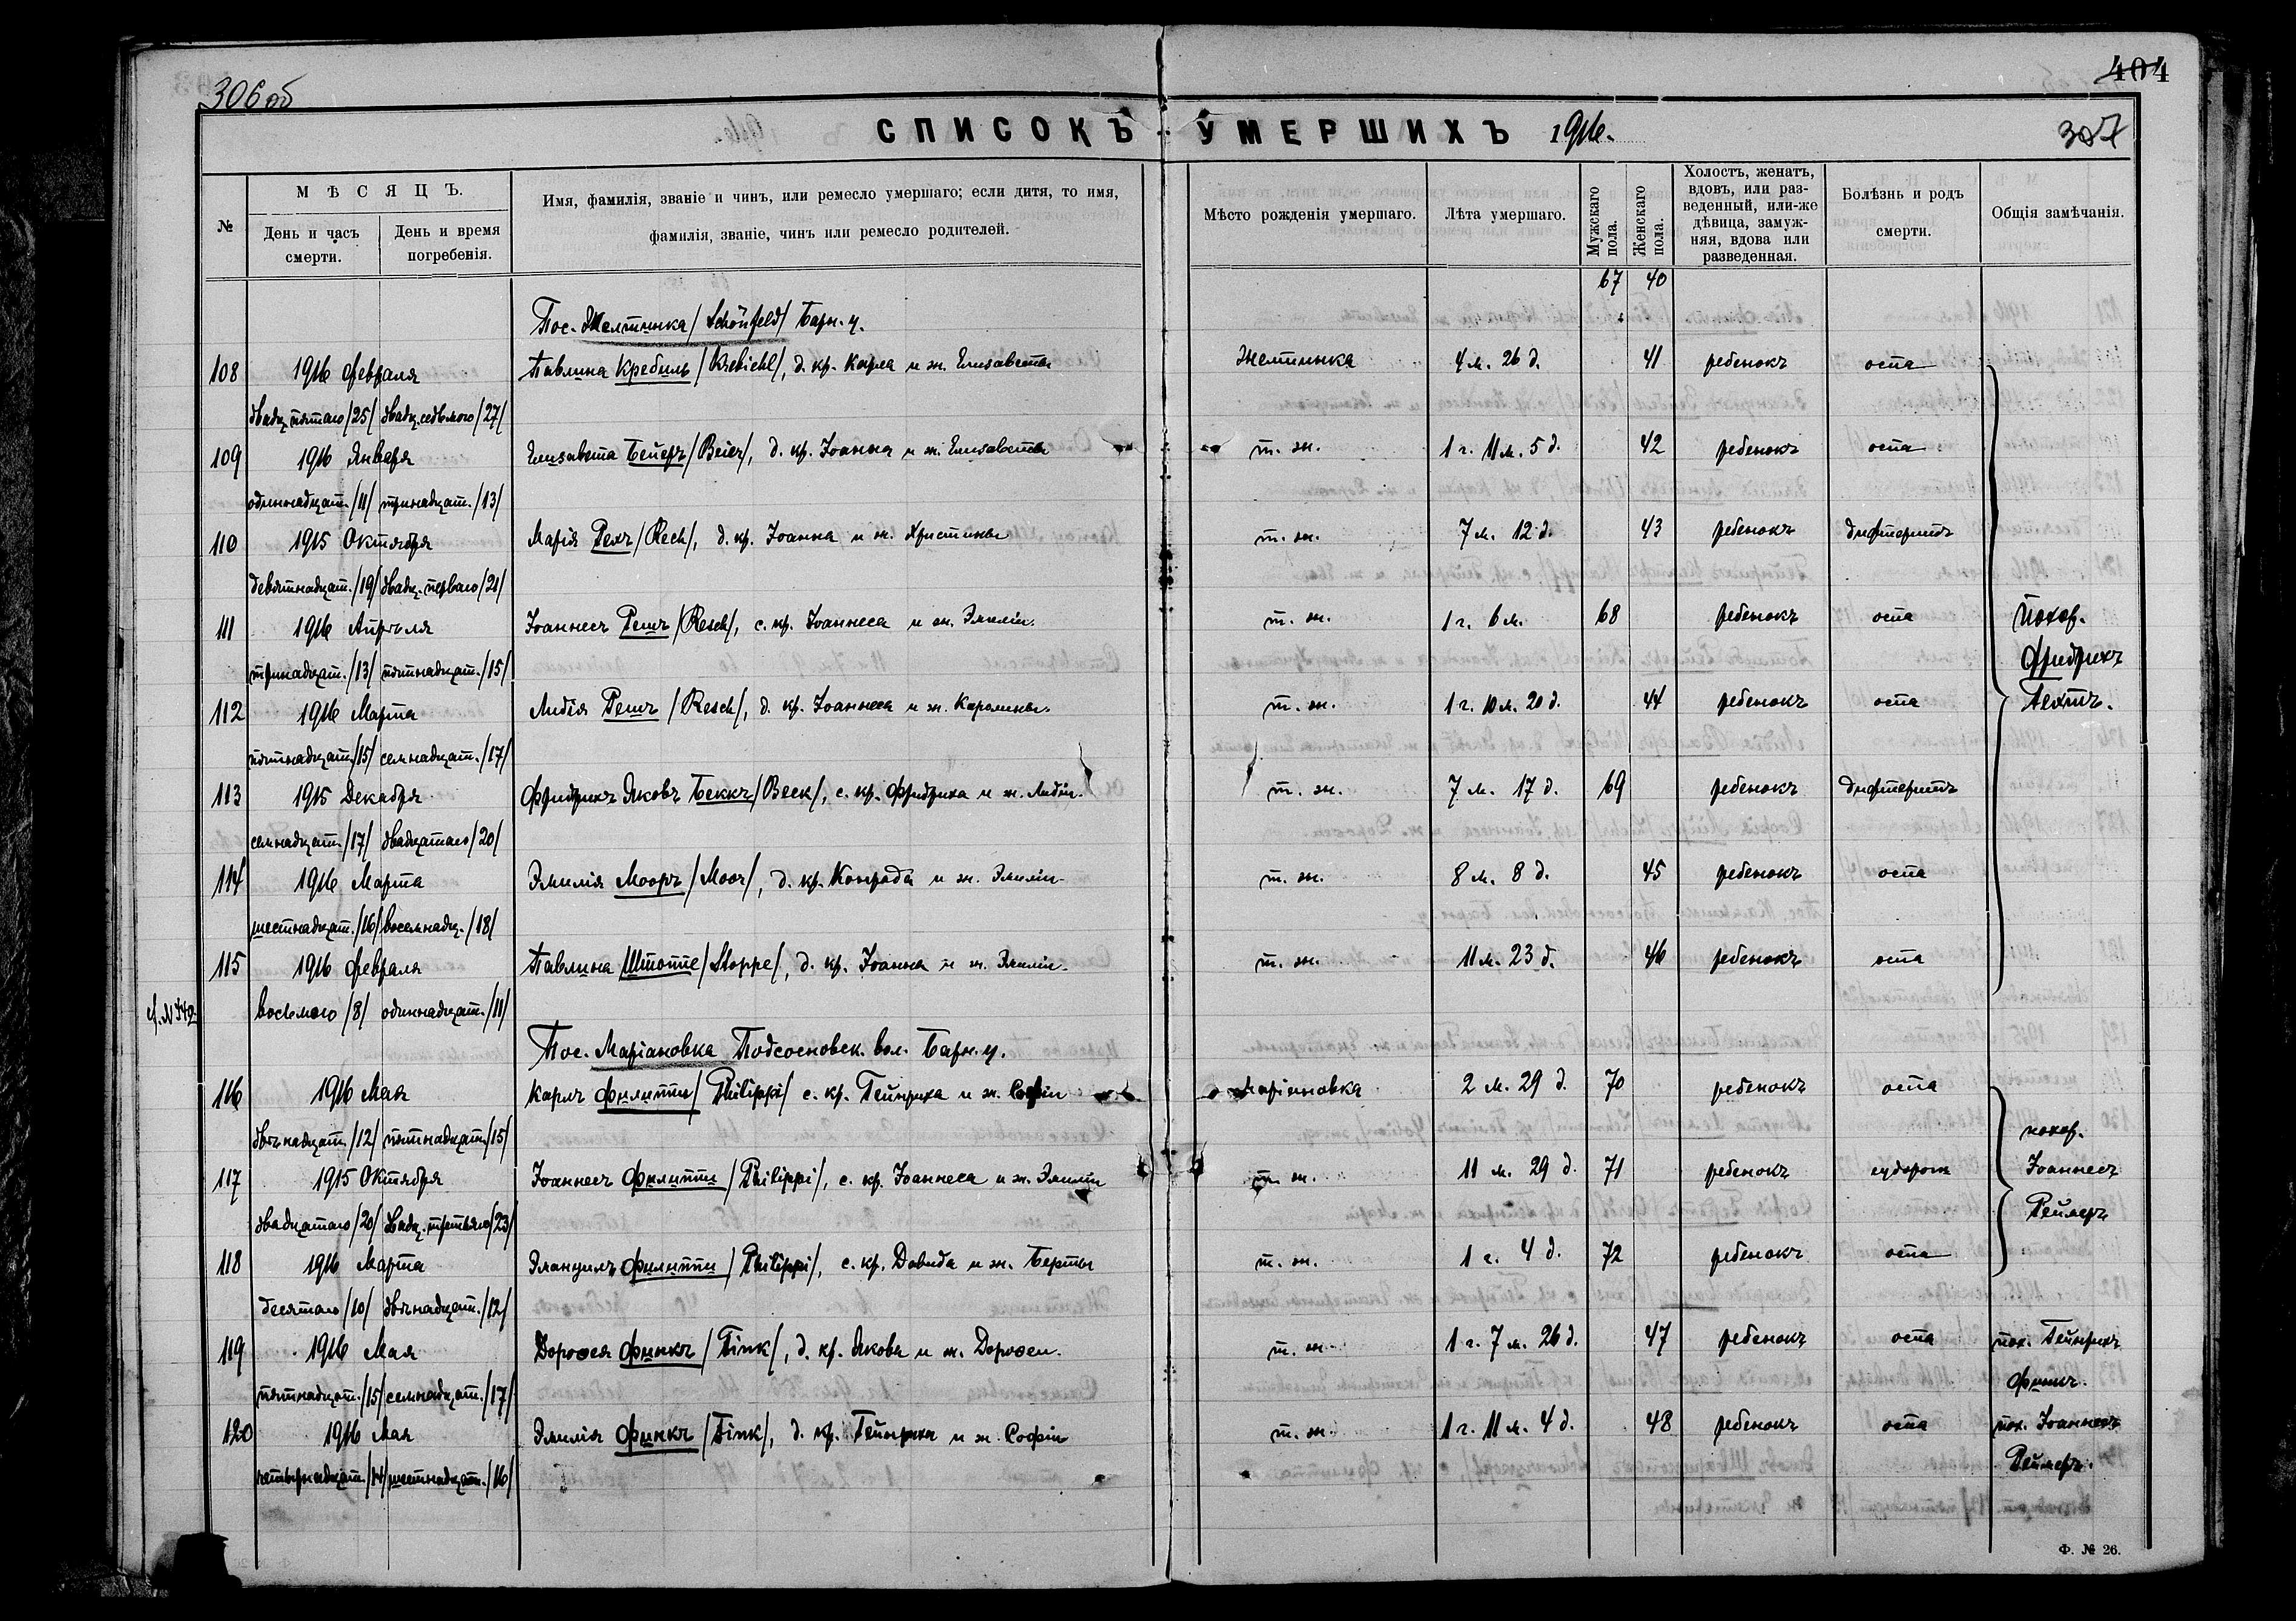 404
306 об
СПИСОКЪ УМЕРШИХЪ 1916.
307
№
МѢСЯЦЪ.
День и часъ смерти.
День и время погребенія.
Имя, фамилія, званіе и чинъ, или ремесло умершаго; если дитя, то имя,
фамилія, званіе, чинъ или ремесло родителей.
Мѣсто рожденія умершаго.
Лѣта умершаго.
Мужскаго пола.
Женскаго пола.
Холостъ, женатъ, вдовъ, или разведенный, или-же дѣвица, замужняя, вдова или разведенная.
Болѣзнь и родъ смерти.
Общія замѣчанія.
67 40
Пос. Желтинка /Schönfeld/ Барн. у.
108 1916 Февраля Павлина Кребиль /Krebiehl/, д. кр. Карла и ж. Елисаветы Желтинка 4 м. 26 д. 41 ребенокъ оспа
двадц. пятаго /25/ двадц. седьмого /27/
109 1916 Января Елизавета Бейеръ /Beier/, д. кр. Іоанна и ж. Елисаветы т. ж. 1 г. 11 м. 5 д. 42 ребенокъ оспа
одиннадцат. /11/ тринадцат. /13/
110 1915 Октября Марія Рехъ /Rech/, д. кр. Іоанна и ж. Христины т. ж. 7 м. 12 д. 43 ребенокъ дифтеритъ
девятнадцат. /19/ двадц. перваго /21/
111 1916 Апрѣля Іоаннесъ Решъ /Resch/, с. кр. Іоаннеса и ж. Эмиліи. т. ж. 1 г. 6 м. 68 ребенокъ оспа Похор.
тринадцат. /13/ пятнадцат. /15/ Фридрихъ
112 1916 Марта Лидія Решъ /Resch/, д. кр. Іоаннеса и ж. Каролины. т. ж. 1 г. 10 м. 20 д. 44 ребенокъ оспа
пятнадцат. /15/ семнадцат. /17/
113 1915 Декабря Фридрихъ Яковъ Беккъ /Beck/, с. кр. Фридриха и ж. Лидіи. т. ж. 7 м. 17 д. 69 ребенокъ дифтеритъ
семнадцат. /17/ двадцатаго /20/
114 1916 Марта Эмилія Мооръ /Moor/, д. кр. Конрада и ж. Эмиліи. т. ж. 8 м. 8 д. 45 ребенокъ оспа
шестнадцат. /16/ восемнадц. /18/
115 1916 Февраля Павлина Штоппе /Stoppe/, д. кр. Іоанна и ж. Эмиліи. т. ж. 11 м. 23 д. 46 ребенокъ оспа
восьмого /8/ одиннадцат. /11/
Пос. Маріановка Подсосновск. вол. Барн. у.
116 1916 Мая Карлъ Филиппи /Philippi/ с. кр. Гейнриха и ж. Софіи Маріановка 2 м. 29 д. 70 ребенокъ оспа
двѣнадцат. /12/ пятнадцат. /15/ похор.
117 1915 Октября Іоаннесъ Филиппи /Philippi/, с. кр. Іоаннеса и ж. Эмиліи т. ж. 11 м. 29 д. 71 ребенокъ судороги Іоаннесъ
двадцатаго /20/ двадц. третьяго /23/ Реймеръ
118 1916 Марта Эмануилъ Филиппи /Philippi/, с. кр. Давида и ж. Берты т. ж. 1 г. 4 д. 72 ребенокъ оспа
десятаго /10/ двѣнадцат. /12/
119 1916 Мая Доровея Финкъ /Fink/, д. кр. Якова и ж. Доровеи. т. ж. 1 г. 7 м. 26 д. 47 ребенокъ оспа пох. Гейнрихъ
пятнадцат. /15/ семнадцат. /17/ Финкъ.
120 1916 Мая Эмилія Финкъ /Fink/, д. кр. Гейнриха и ж. Софіи т. ж. 1 г. 11 м. 4 д. 48 ребенокъ оспа пох. Іоаннесъ
четырнадцат. /14/ шестнадцат. /16/ Реймеръ.
Ф. № 26.